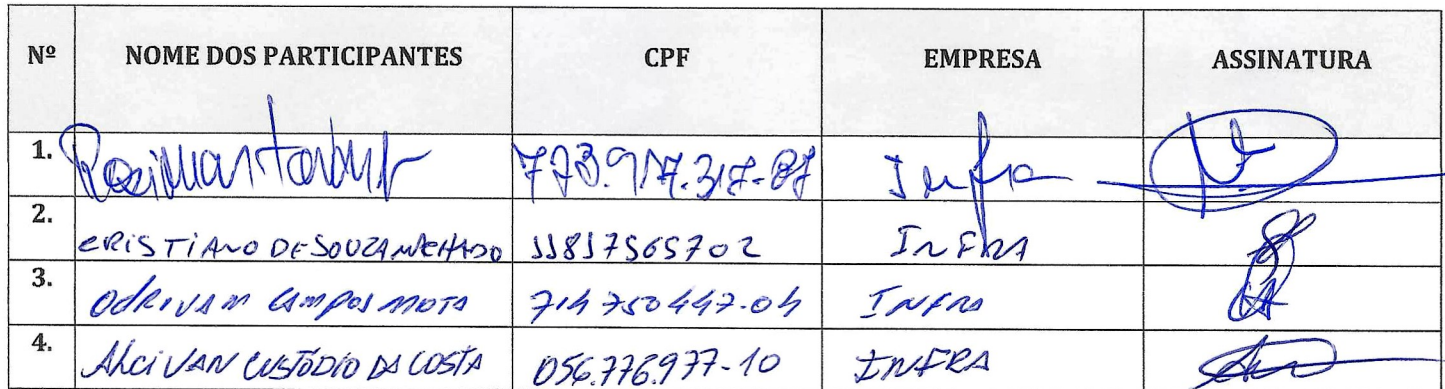 Nº NOME DOS PARTICIPANTES CPF EMPRESA ASSINATURA
1. 773.917.317-87 Infra
2. CRISTIANO DE SOUZA MACHADO 11817565702 INFRA
3. ODRIVAM CAMPOS MOTA 714750447-04 INFRA
4. ALCIVAN CUSTÓDIO DA COSTA 056.776.977-10 INFRA